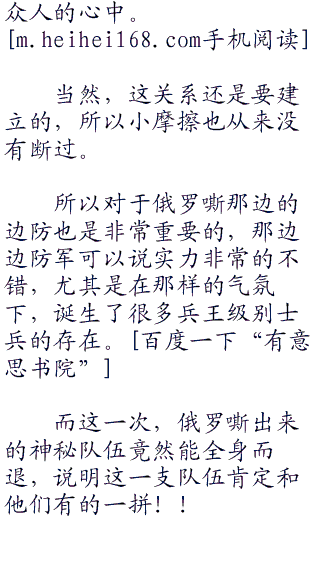 众人的心中。
[m.heihei168.com手机阅读]
当然，这关系还是要建
立的，所以小摩擦也从来没
有断过。
所以对于俄罗嘶那边的
边防也是非常重要的，那边
边防军可以说实力非常的不
错，尤其是在那样的气氛
下，诞生了很多兵王级别士
兵的存在。[百度一下“有意
思书院”]
而这一次，俄罗嘶出来
的神秘队伍竟然能全身而
退，说明这一支队伍肯定和
他们有的一拼！！